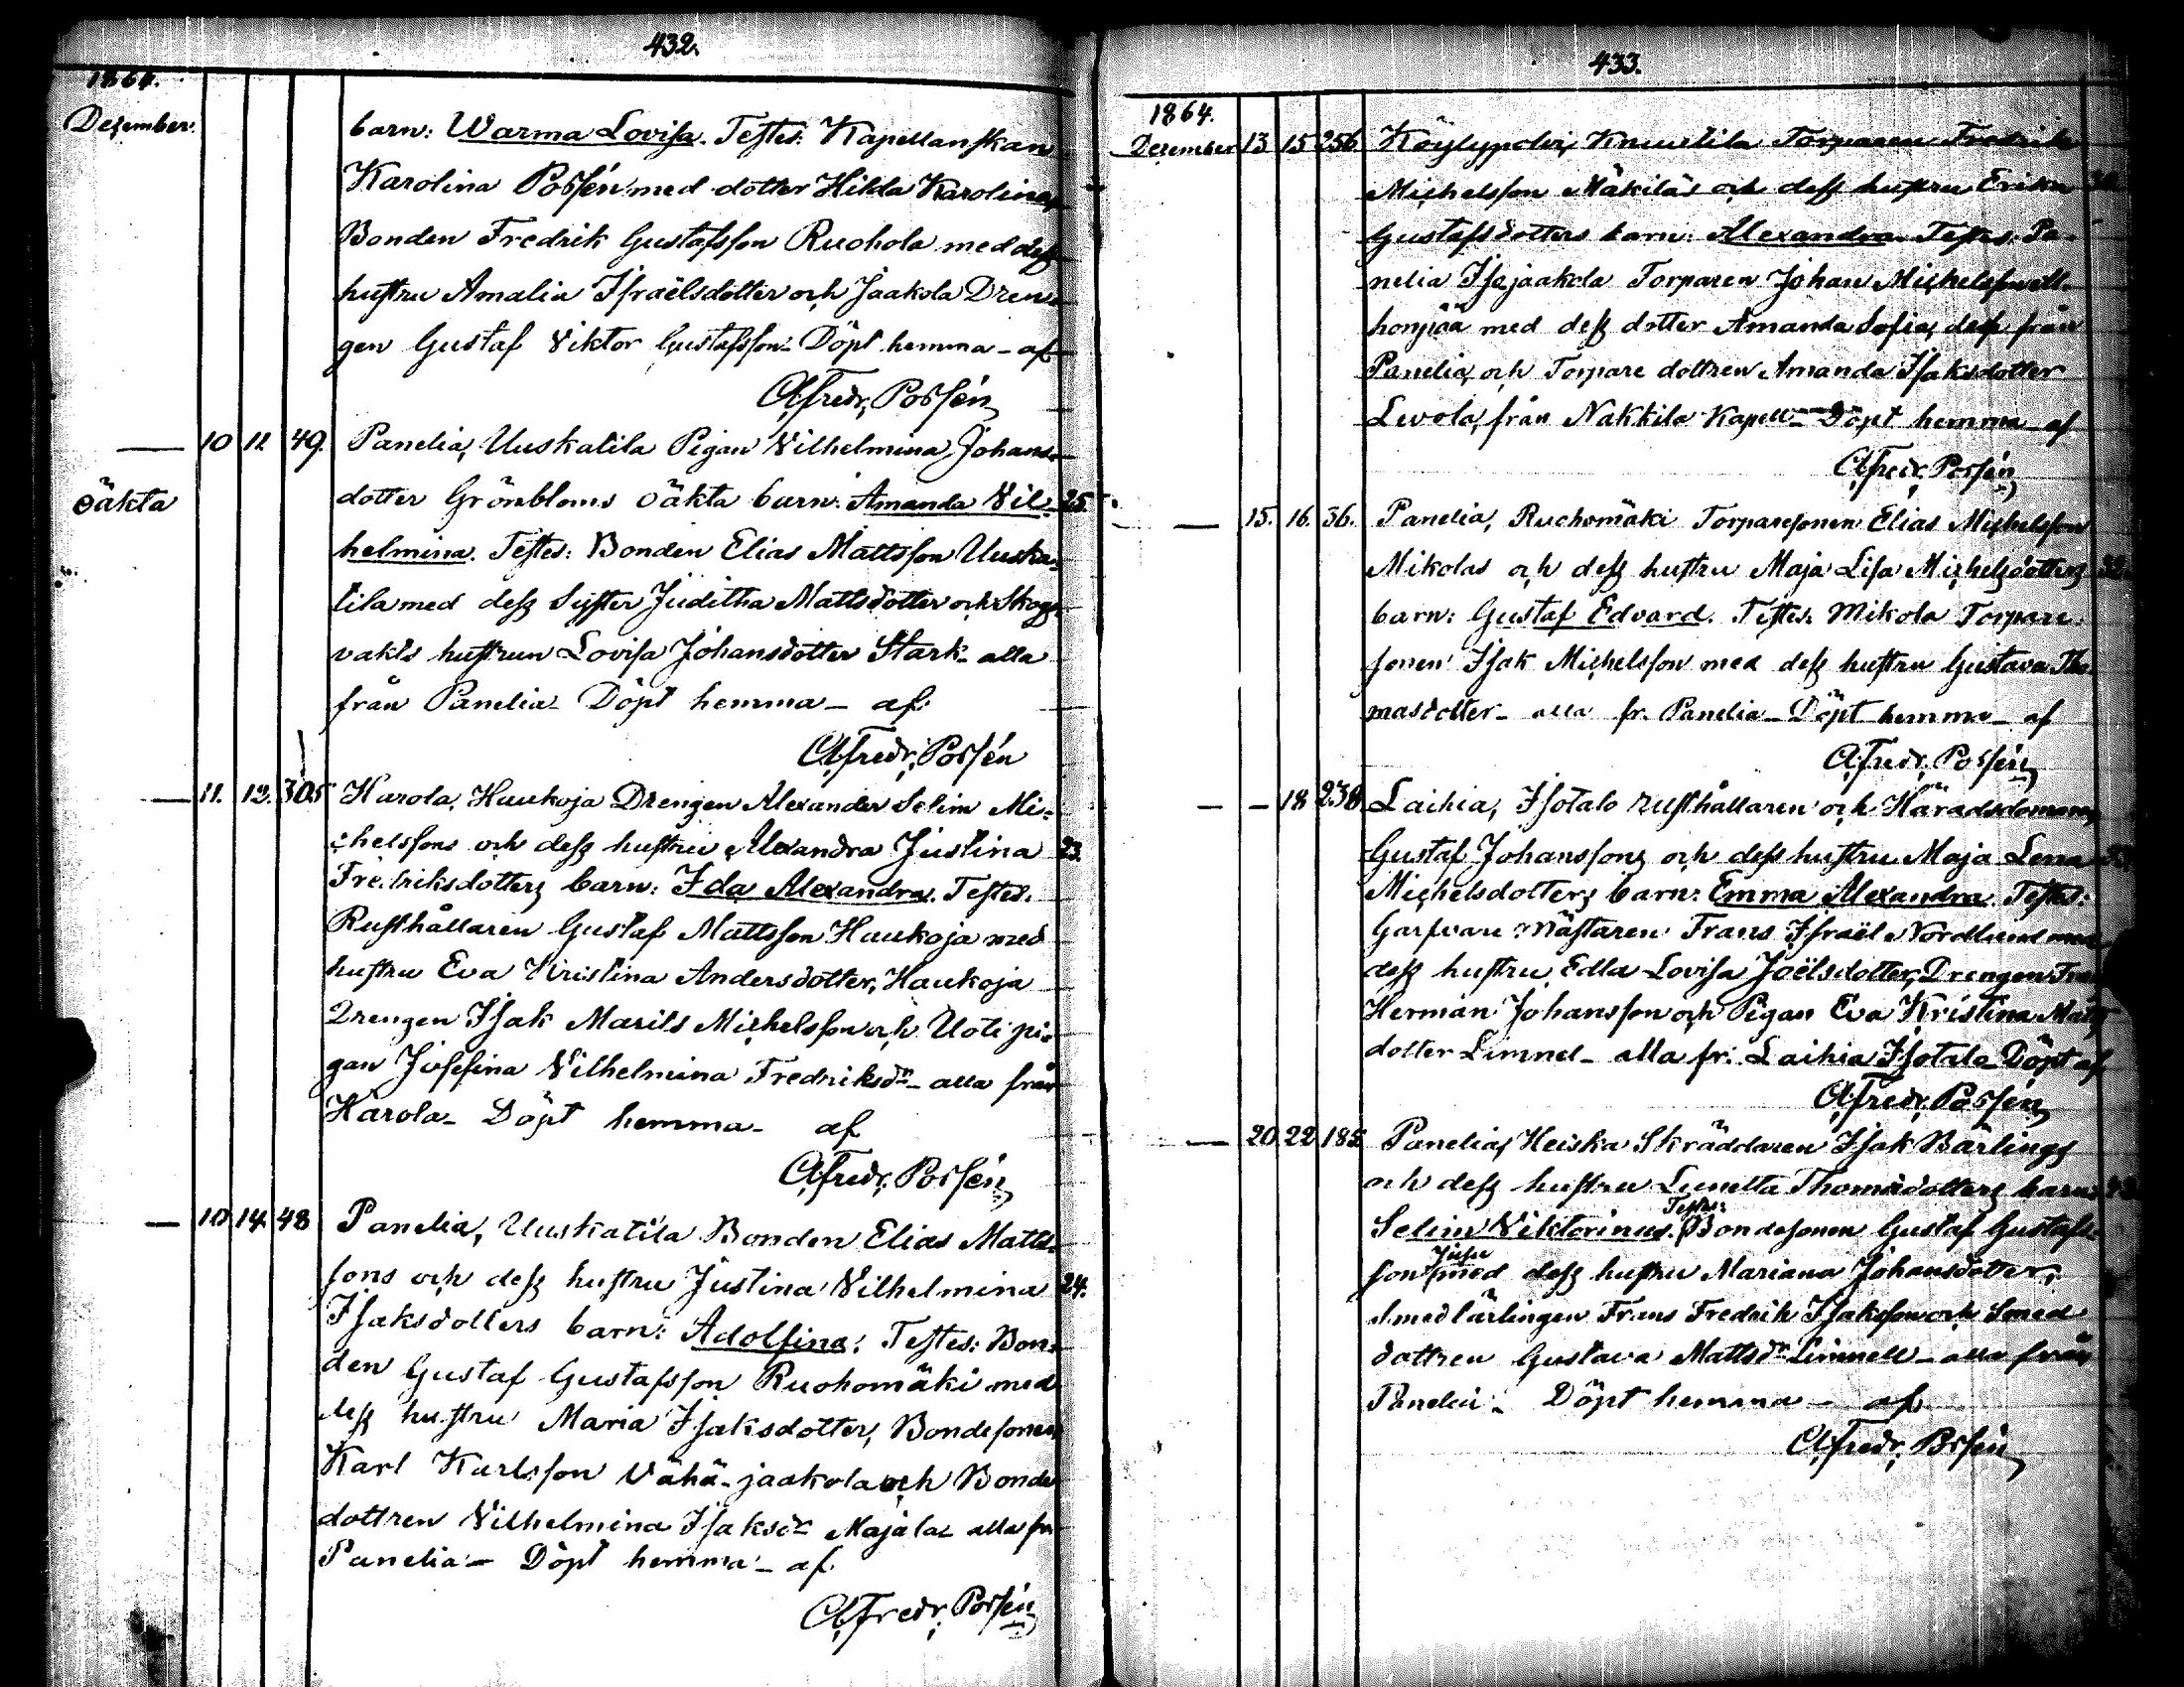 432.
1864.
Dezember.
barn: Warma Lovisa. Testes: Kapellanskan
Karolina Possén med dotter Hilda Karolina,
Bonden Fredrik Gustafsson Ruohola med dess
hustru Amalia Israëlsdotter och Jaakola Dren-
gen Gustaf Viktor Gustafsson - Döpt hemma - af
A. Fredr. Possén
— 10 11. 49. Panelia, Uuskatila Pigan Vilhelmina Johans-
oäkta dotter Grönbloms oäkta barn: Amanda Vil- 25.
helmina. Testes: Bonden Elias Mattsson Uuska-
tila med dess Syster Juditha Mattsdotter och Skogs-
vakts hustrun Lovisa Johansdotter Stark - alla
från Panelia - Döpt hemma - af
A. Fredr. Possén
— 11. 12. 305 Harola, Haukoja Drengen Alexander Selim Mi-
chelssons och dess hustru Alexandra Justina 23.
Fredriksdotters barn: Ida Alexandra. Testes:
Rusthållaren Gustaf Mattsson Haukoja med
hustru Eva Kristina Andersdotter, Haukoja
Drengen Isak Marits Michelsson och Uoti pi-
gan Josefina Vilhelmina Fredriksdr - alla från
Harola - Döpt hemma - af
A. Fredr. Possén
— 10 14. 48 Panelia, Uuskatila Bonden Elias Matts-
sons och dess hustru Justina Vilhelmina 24.
Isaksdotters barn: Adolfina. Testes: Bon-
den Gustaf Gustafsson Ruohomäki med
dess hustru Maria Isaksdotter, Bondesonen
Karl Karlsson Vähä-jaakola och Bonde
dottren Vilhelmina Isaksdr Majala - alla fr
Panelia - Döpt hemma - af
A. Fredr. Possén
433.
1864.
Dezember 13 15 256 Köylypolvi, Knuutila Torparen Fredrik
Michelsson Mäkiläs och dess hustru Erika
Gustafsdotters barn: Alexandra. Testes: Pa-
nelia Isojaakola Torparen Johan Michelsson
med dess dotter Amanda Sofia, dess från
Panelia, och Torpare dottren Amanda Isaksdotter
Levola, från Nakkila Kapell - Döpt hemma - af
A. Fredr. Possén
— 15. 16. 36. Panelia, Ruohomäki Torparesonen Elias Michelsson
Mikolas och dess hustru Maja Lisa Michelsdotters
barn: Gustaf Edvard. Testes: Mikola Torpare-
sonen Isak Michelsson med dess hustru Gustava Tho-
masdotter - alla fr. Panelia - Döpt hemma - af
A. Fredr. Possén
— — 18 238 Laihia, Isotalo rusthållaren och Häradsdomaren
Gustaf Johanssons och dess hustru Maja Lena
Michelsdotters barn: Emma Alexandra. Testes:
Garfvare mästaren Frans Israël Nordlund med
dess hustru Edla Lovisa Joëlsdotter, Drengen
Herman Johansson och Pigan Eva Kristina Matts
dotter Limnel - alla fr. Laihia Isotalo - Döpt af
A. Fredr. Possén
— 20 22 185 Panelia, Heiska Skräddaren Isak Bärlings
och dess hustru Lunetta Thomasdotters barn
Selim Viktorinus. Testes: Bondesonen Gustaf Gustafs-
son Jusu med dess hustru Mariana Johansdotter,
Smedlärlingen Frans Fredrik Isaksson och Smed
dottren Gustava Mattsdr Limnell - alla från
Panelia - Döpt hemma - af
A. Fredr. Possén